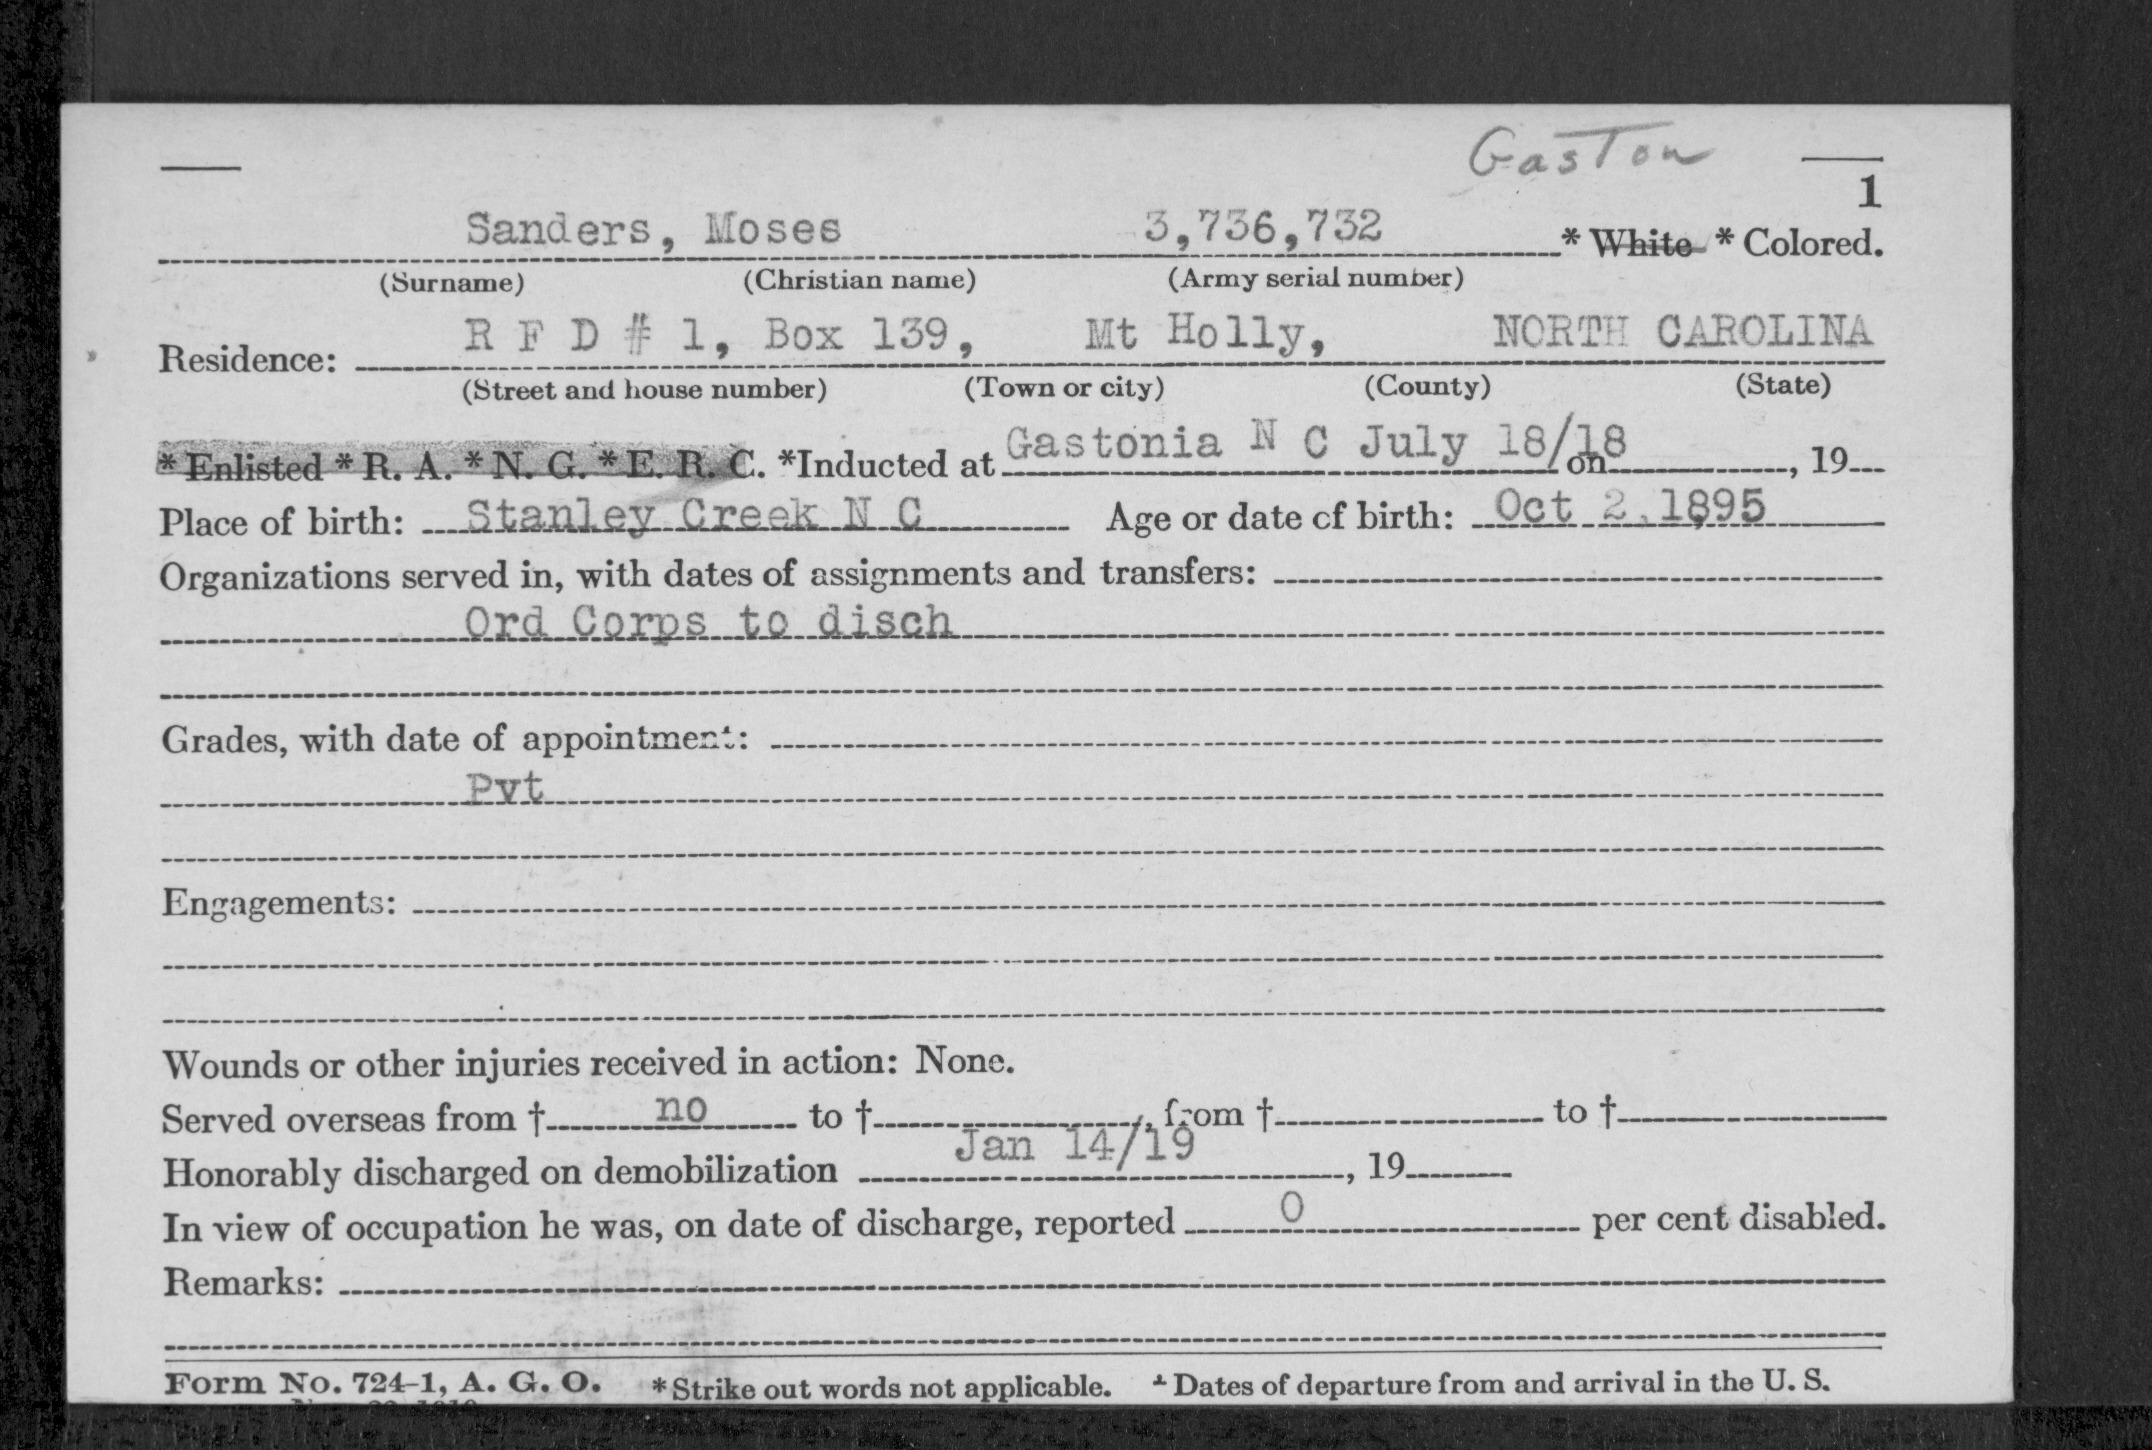 Gaston
1
Sanders, Moses 3,736,732 * White * Colored.
(Surname) (Christian name) (Army serial number)
R F D # 1, Box 139, Mt Holly, NORTH CAROLINA
Residence:
(Street and house number) (Town or city) (County) (State)
* Enlisted * R. A. * N. G. * E. R. C. *Inducted at Gastonia N C July 18/18 on , 19
Place of birth: Stanley Creek N C Age or date of birth: Oct 2, 1895
Organizations served in, with dates of assignments and transfers:
Ord Corps to disch
Grades, with date of appointment:
Pvt
Engagements:
Wounds or other injuries received in action: None.
Served overseas from † no to † , from † to †
Honorably discharged on demobilization Jan 14/19 , 19
In view of occupation he was, on date of discharge, reported 0 per cent disabled.
Remarks:
Form No. 724-1, A. G. O. * Strike out words not applicable. † Dates of departure from and arrival in the U. S.